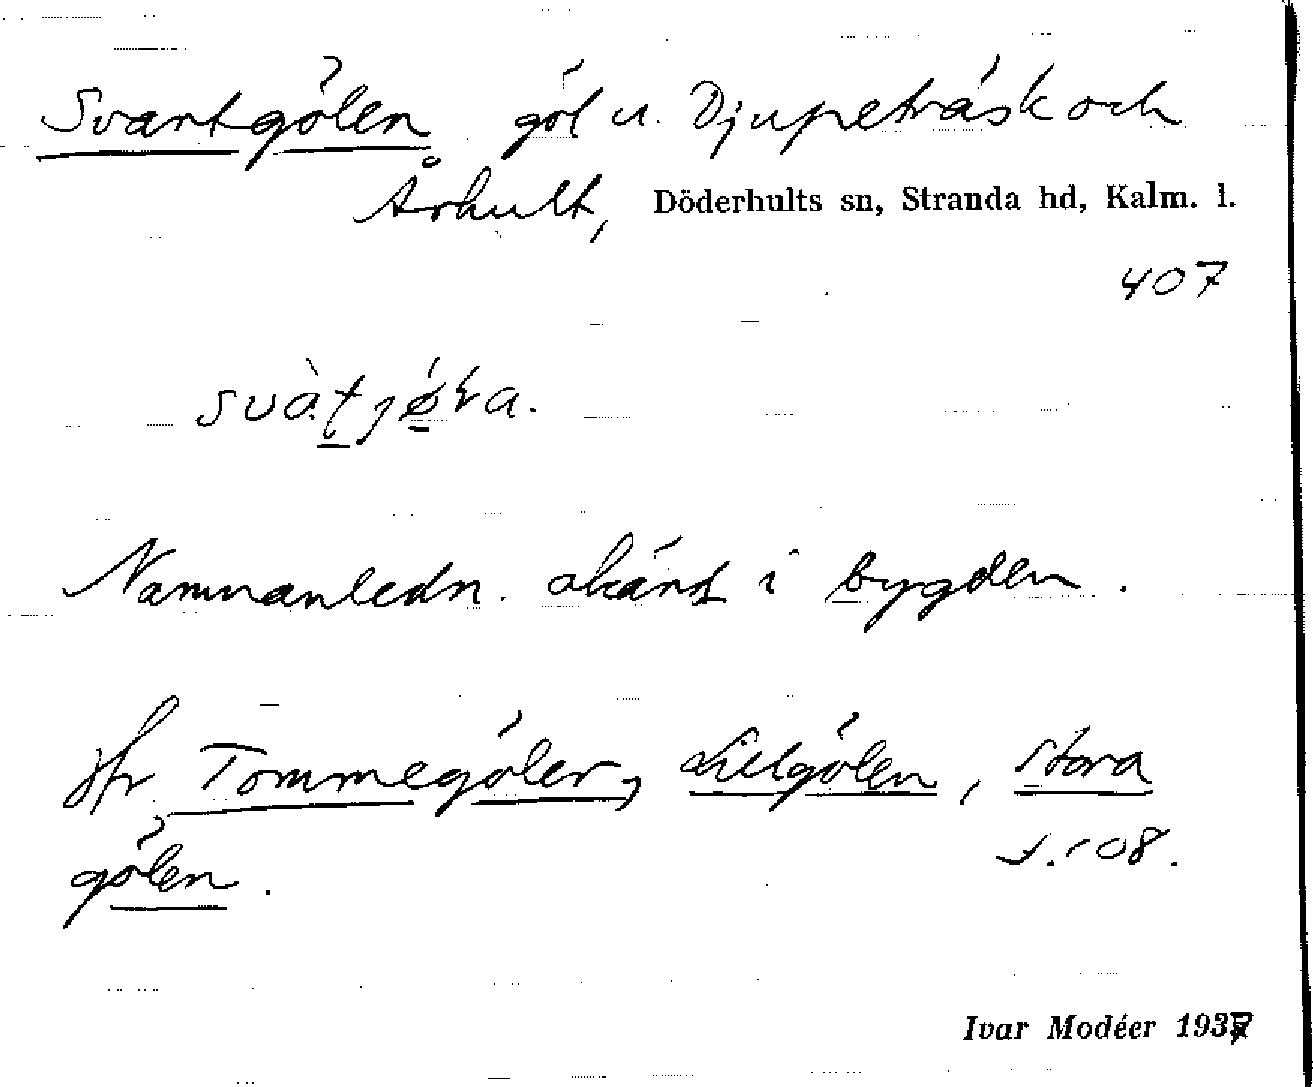 Svartgölen göl u. Djupeträsk och
Århult, Döderhults sn, Stranda hd, Kalm. l.
407
Namnanledn. okänd i bygden.
Jfr Tommegöler, Lillgölen, Stora
gölen. s. 108.
Ivar Modéer 1937